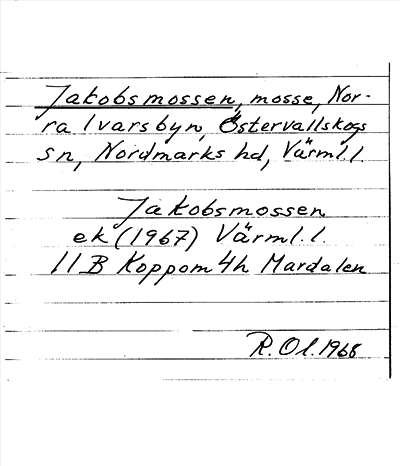 Jakobsmossen, mosse, Nor-
ra Ivarsbyn, Östervallskogs
sn, Nordmarks hd, Värml.l
Jakobsmossen
ek (1967) Värml.l.
11B Koppom 4h Mardalen
R.Ol.1968